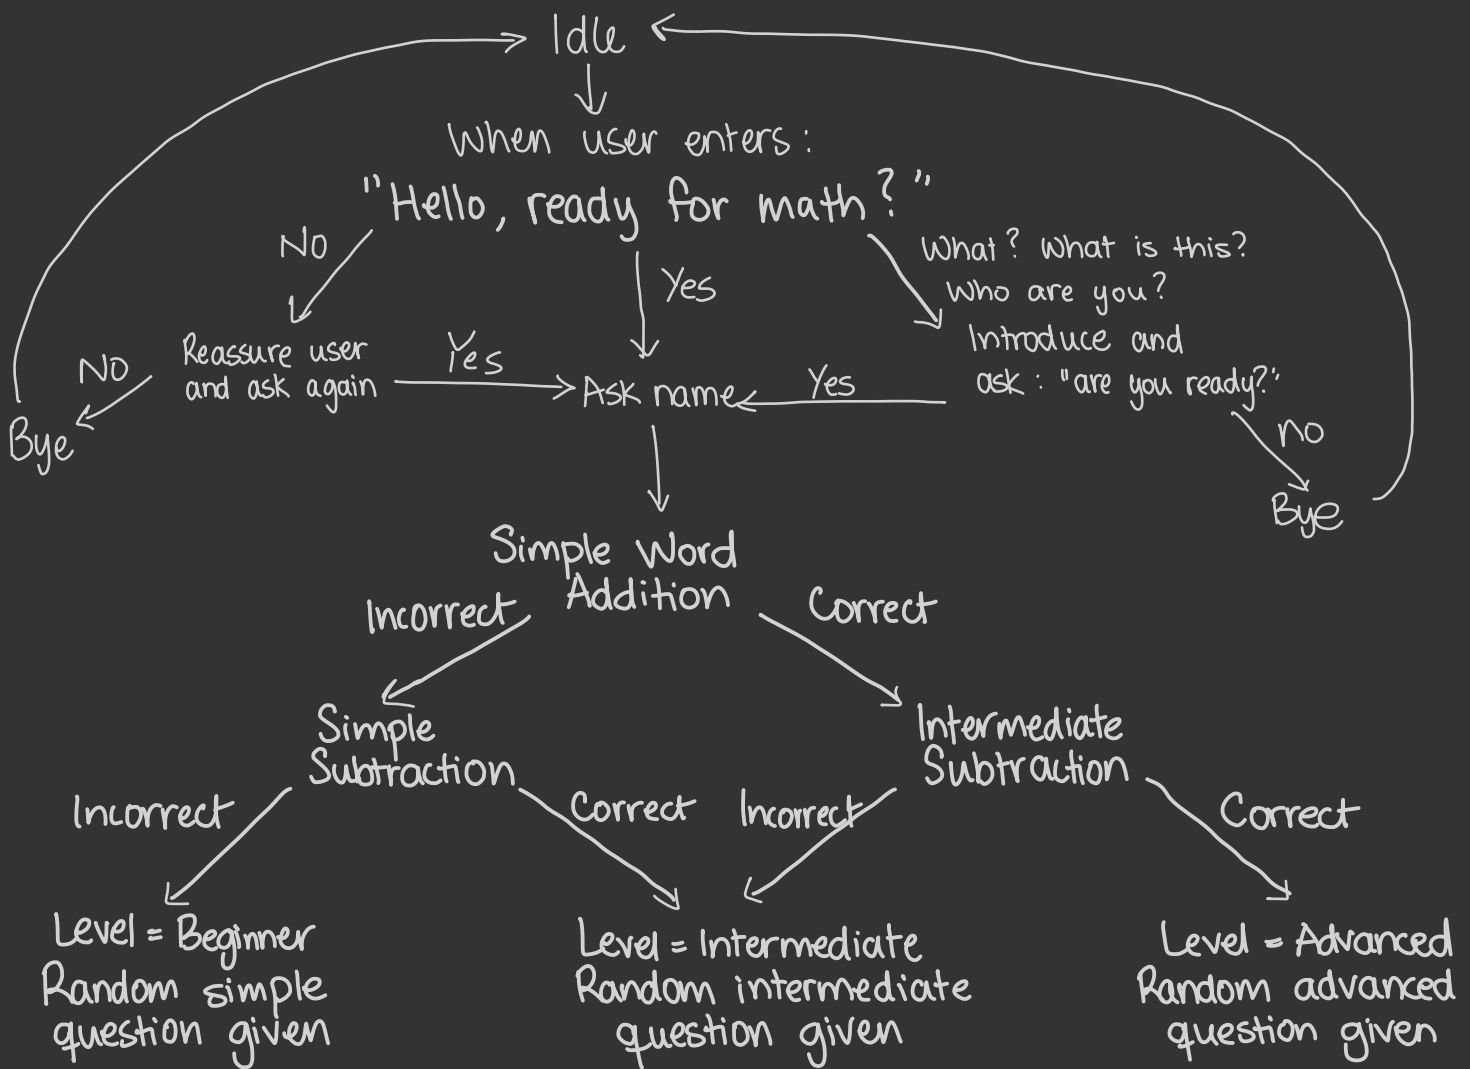 Idle
When user enters:
"Hello, ready for math?"
No
Yes
What? What is this?
Who are you?
Reassure user
and ask again
No
Yes
Ask name
Yes
Introduce and
ask: "are you ready?"
Bye
no
Bye
Simple Word
Addition
Incorrect
Correct
Simple
Subtraction
Intermediate
Subtraction
Incorrect
Correct
Incorrect
Correct
Level = Beginner
Random simple
question given
Level = Intermediate
Random intermediate
question given
Level = Advanced
Random advanced
question given